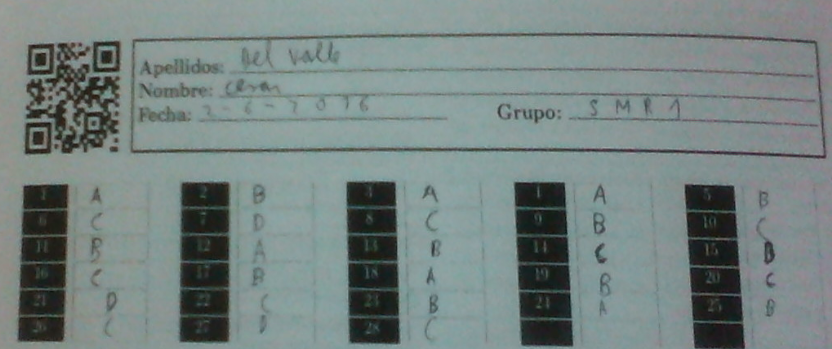 Apellidos: Del Valle
Nombre: Cesar
Fecha: 2-6-2016 Grupo: SMR1
1 A 2 B 3 A 4 A 5 B
6 C 7 D 8 C 9 B 10 C
11 B 12 A 13 B 14 C 15 D
16 C 17 B 18 A 19 B 20 C
21 D 22 C 23 B 24 A 25 B
26 C 27 D 28 C